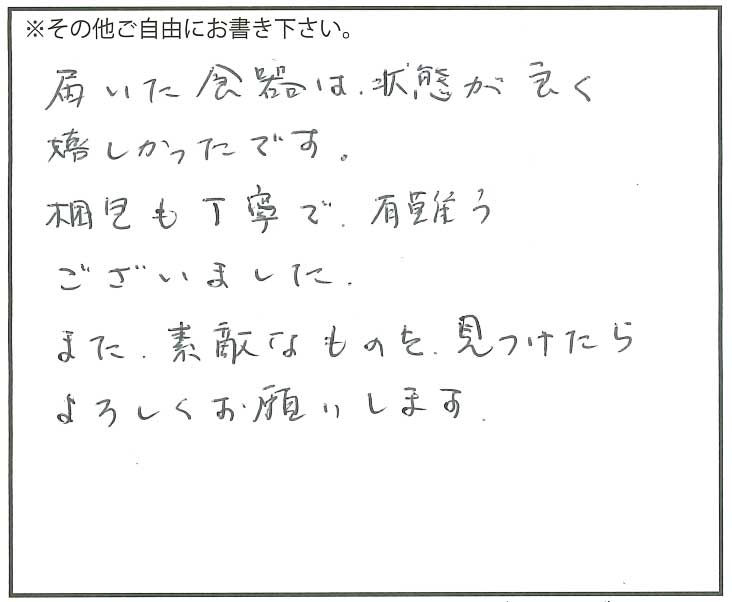 ※その他ご自由にお書き下さい。
届いた食器は、状態が良く
嬉しかったです。
梱包も丁寧で、有難う
ございました。
また、素敵なものを、見つけたら
よろしくお願いします。